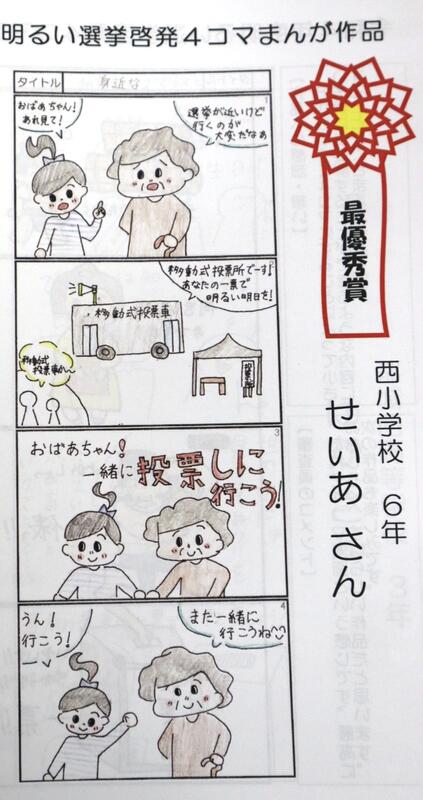 明るい選挙啓発４コマまんが作品
タイトル
身近な
1
選挙が近いけど
行くのが
大変だなぁ
おばぁちゃん!
あれ見て!
2
移動式投票所でーす!
あなたの一票で
明るい明日を!
移動式投票車
移動式
投票車か〜
投票所
3
おばぁちゃん!
一緒に投票しに
行こう!
4
また一緒に
行こうね
うん!
行こう!
最優秀賞
西小学校 ６年
せいあ さん